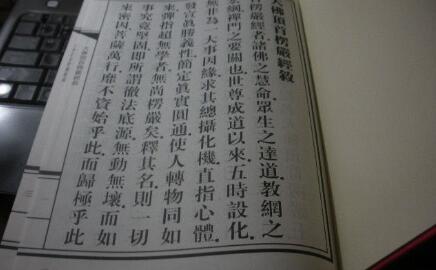 大佛頂首楞嚴經敘
楞嚴經者.諸佛之慧命.眾生之達道.教網之
宏綱.禪門之要關也.世尊成道以來.五時設化.
無非為一大事因緣.求其總攝化機.直指心體.
發宣真勝義性.簡定真實圓通.使人轉物同如
來.彈指超無學者.無尚楞嚴矣.釋其名.則一切
事究竟堅固.即所謂徹法底源.無動無壞.而如
來密因.菩薩萬行.靡不資始乎此.而歸極乎此